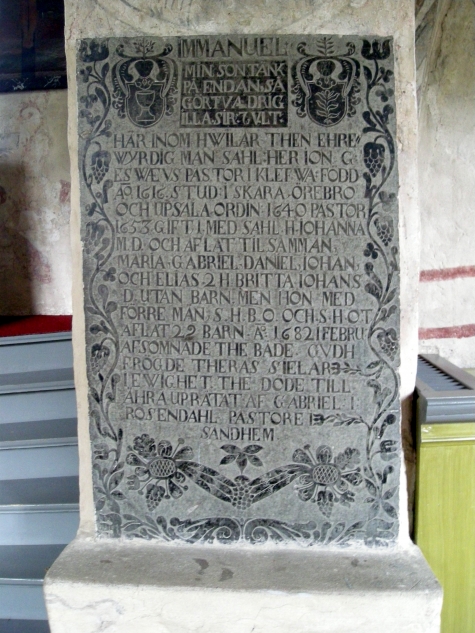 IMMANUEL
MIN SON TÄNK
PÅ ENDAN, SÅ
GÖR TVA DRIG
ILLA. SIR: 7 VLT.
HÄR INOM HWILAR THEN EHRE
WYRDIG MAN SAHL: HER ION G:
ESWÆVS PASTOR I KLEFWA FÖDD
A: 1616. STUD: I SKARA, ÖREBRO
OCH UPSALA ORDIN: 1640 PASTOR
1653 GIFT I MED SAHL H IOHANNA
M.D. OCH AFLAT TILSAMMAN
MARIA. GABRIEL. DANIEL. IOHAN
OCH ELIAS. 2 H BRITTA IOHANS
D. UTAN BARN. MEN HON MED
FÖRRE MAN S. H. B. O. OCH S. H. O T
AFLAT 22 BARN. A: 1682 I FEBRU
AFSOMNADE THE BÅDE. GVDH
FRÖGDE THERAS SIELAR
I EWIGHET. THE DÖDE TILL
ÄHRA UPRÄTAT AF GABRIEL I:
ROSENDAHL PASTORE I
SANDHEM